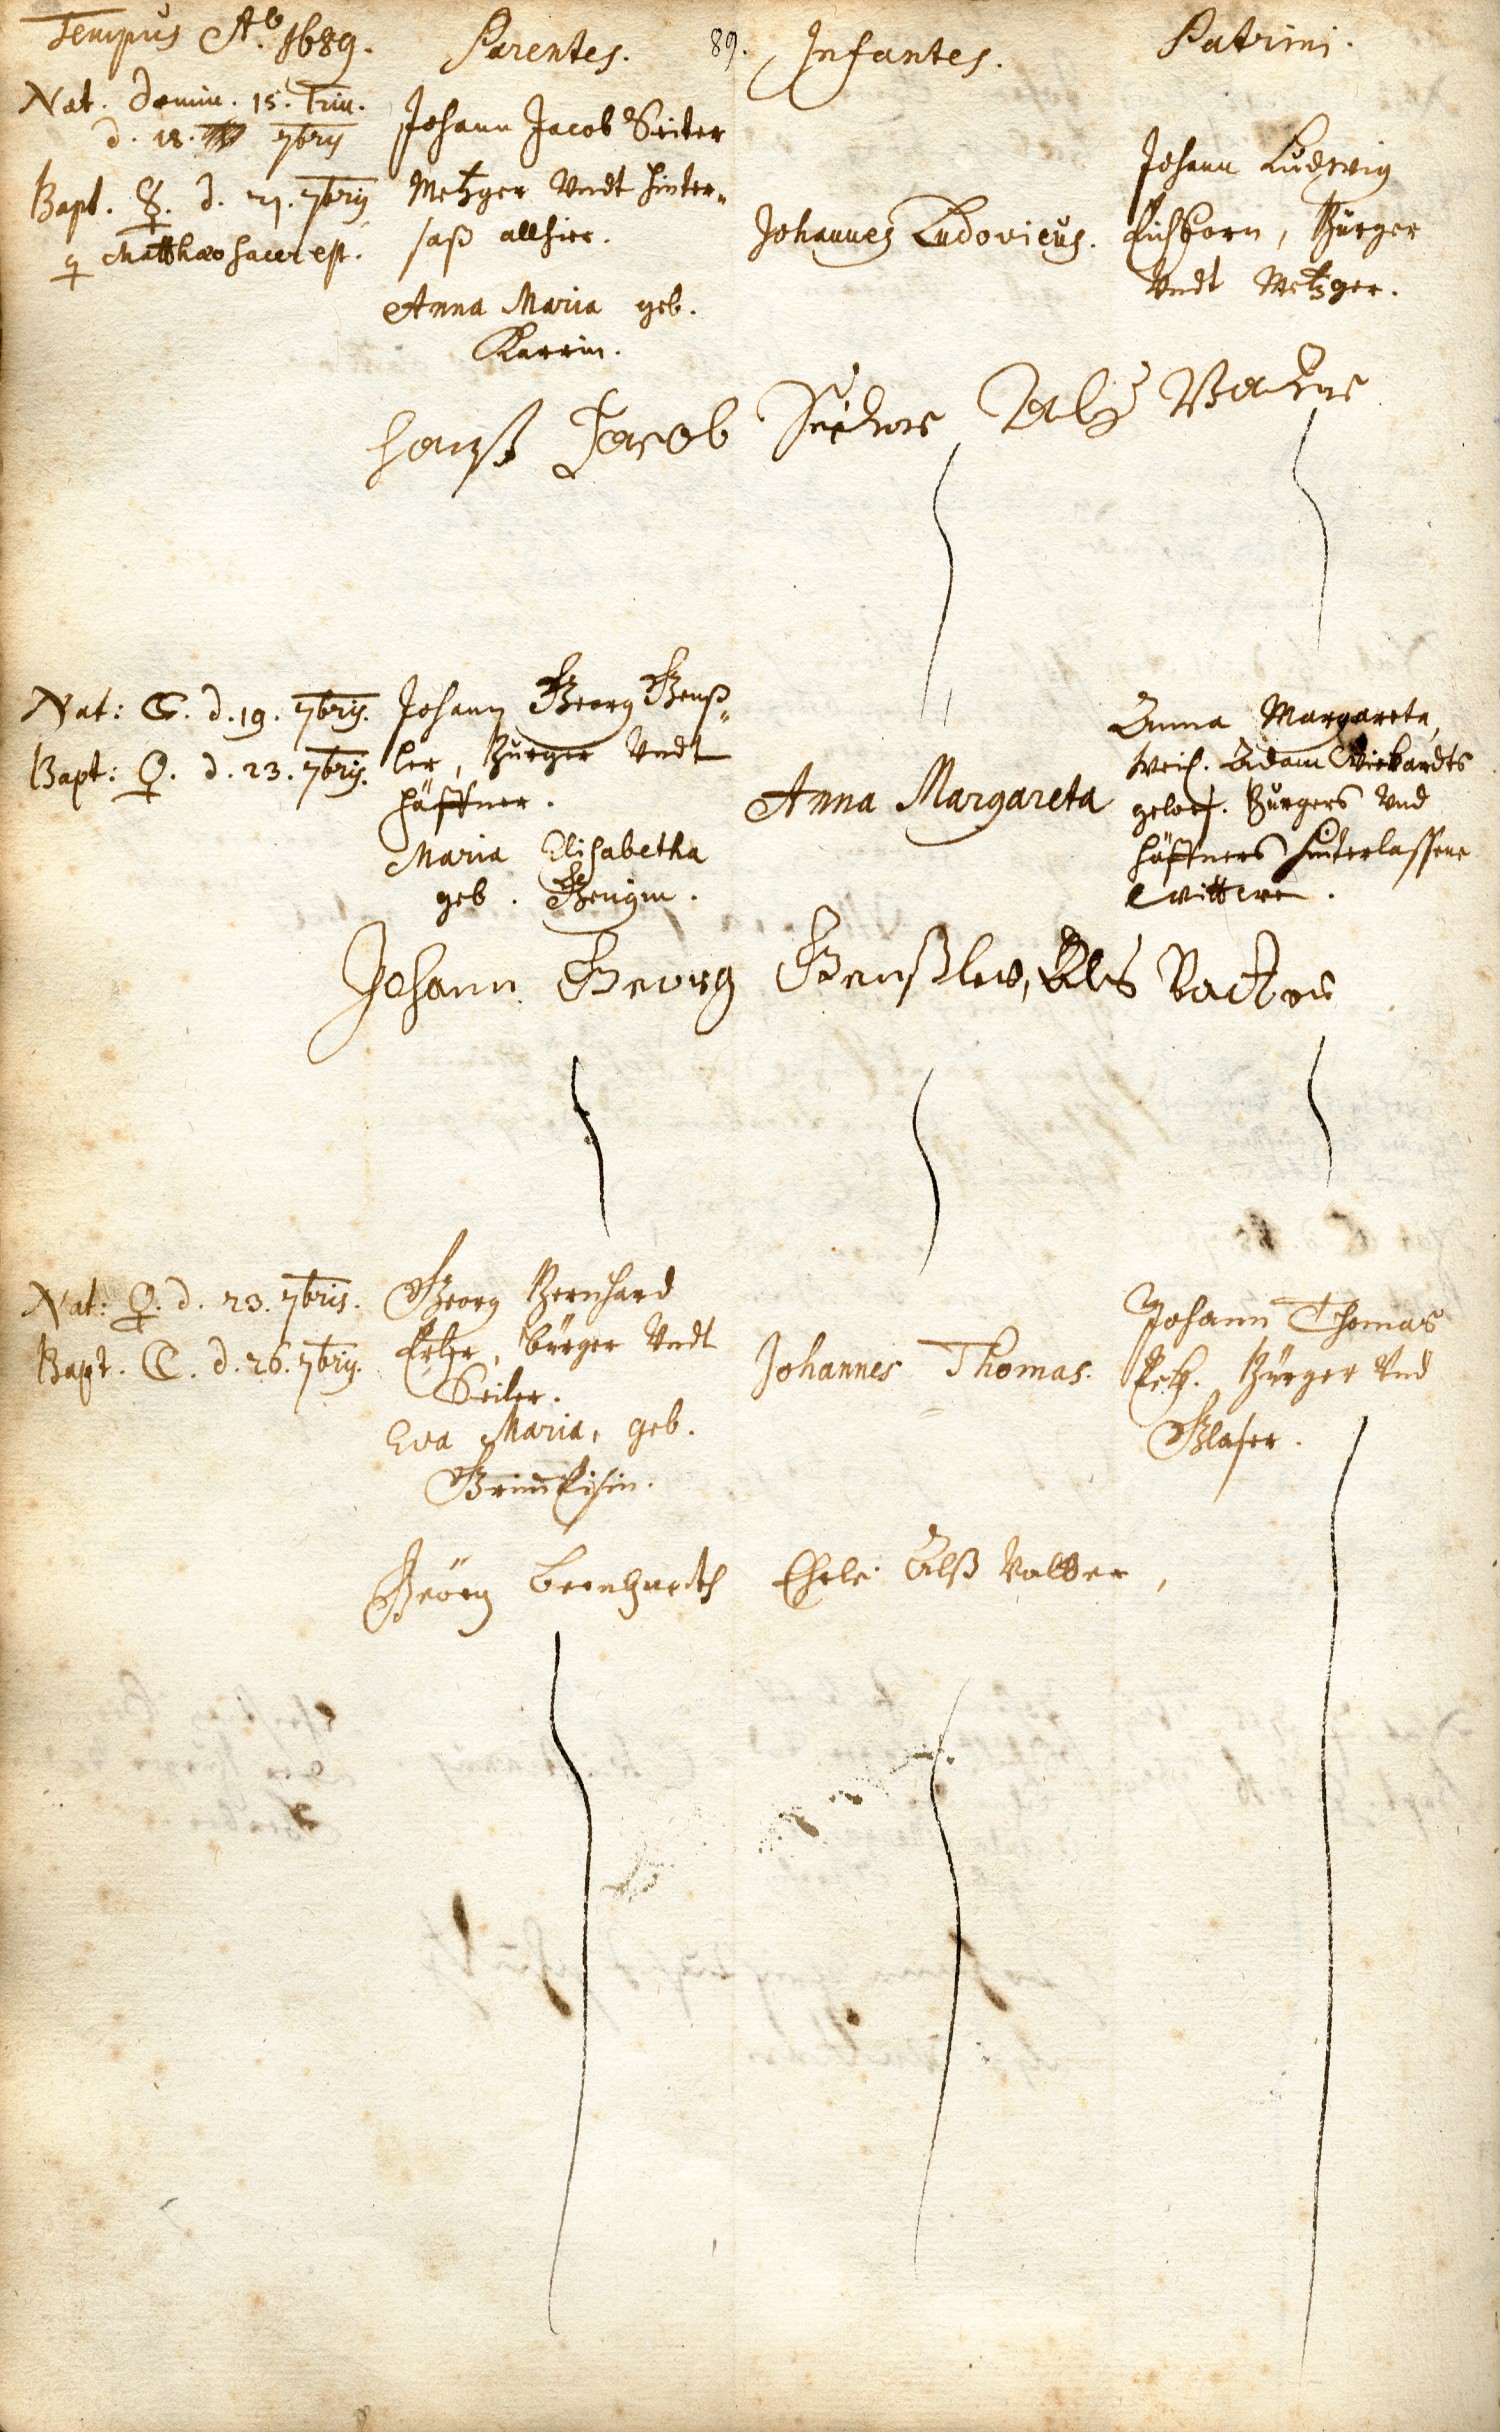 Tempus Aº. 1689.
Parentes.
89.
Infantes.
Patrini.
Nat. Domin. 15. Trin.
d. 18. 7bris
Bapt. ☿. d. 21. 7bris
q Matthæo sacer est.
Johann Jacob Seiter
Metzger Vndt hinter-
saß allhier.
Anna Maria geb.
Karrin.
Johannes Ludovicus.
Johann Ludwig
Eichhorn, Bürger
Vndt Metzger.
Hanß Jacob Alß Vatter
Nat: d. 19. 7bris.
Bapt: ☾. d. 23. 7bris.
Johann Georg Genß-
ler, Burger Vndt
Häffner.
Maria Elisabetha
geb.
Anna Margareta
Anna Margareta,
Weil. Adam Wickardts
gewes. Burgers Vnd
Häffners hinterlassene
Wittwe.
Johann Georg Genßler, Als Vatter
Nat: ☾. d. 23. 7bris.
Bapt. d. 26. 7bris.
Georg Bernhard
Erler, bürger Vndt
Seiler.
Eva Maria, geb.
Johannes Thomas.
Johann Thomas
Petz. Bürger Vnd
Glaser.
Geörg Bernhardth Ehrler Alß Vatter,